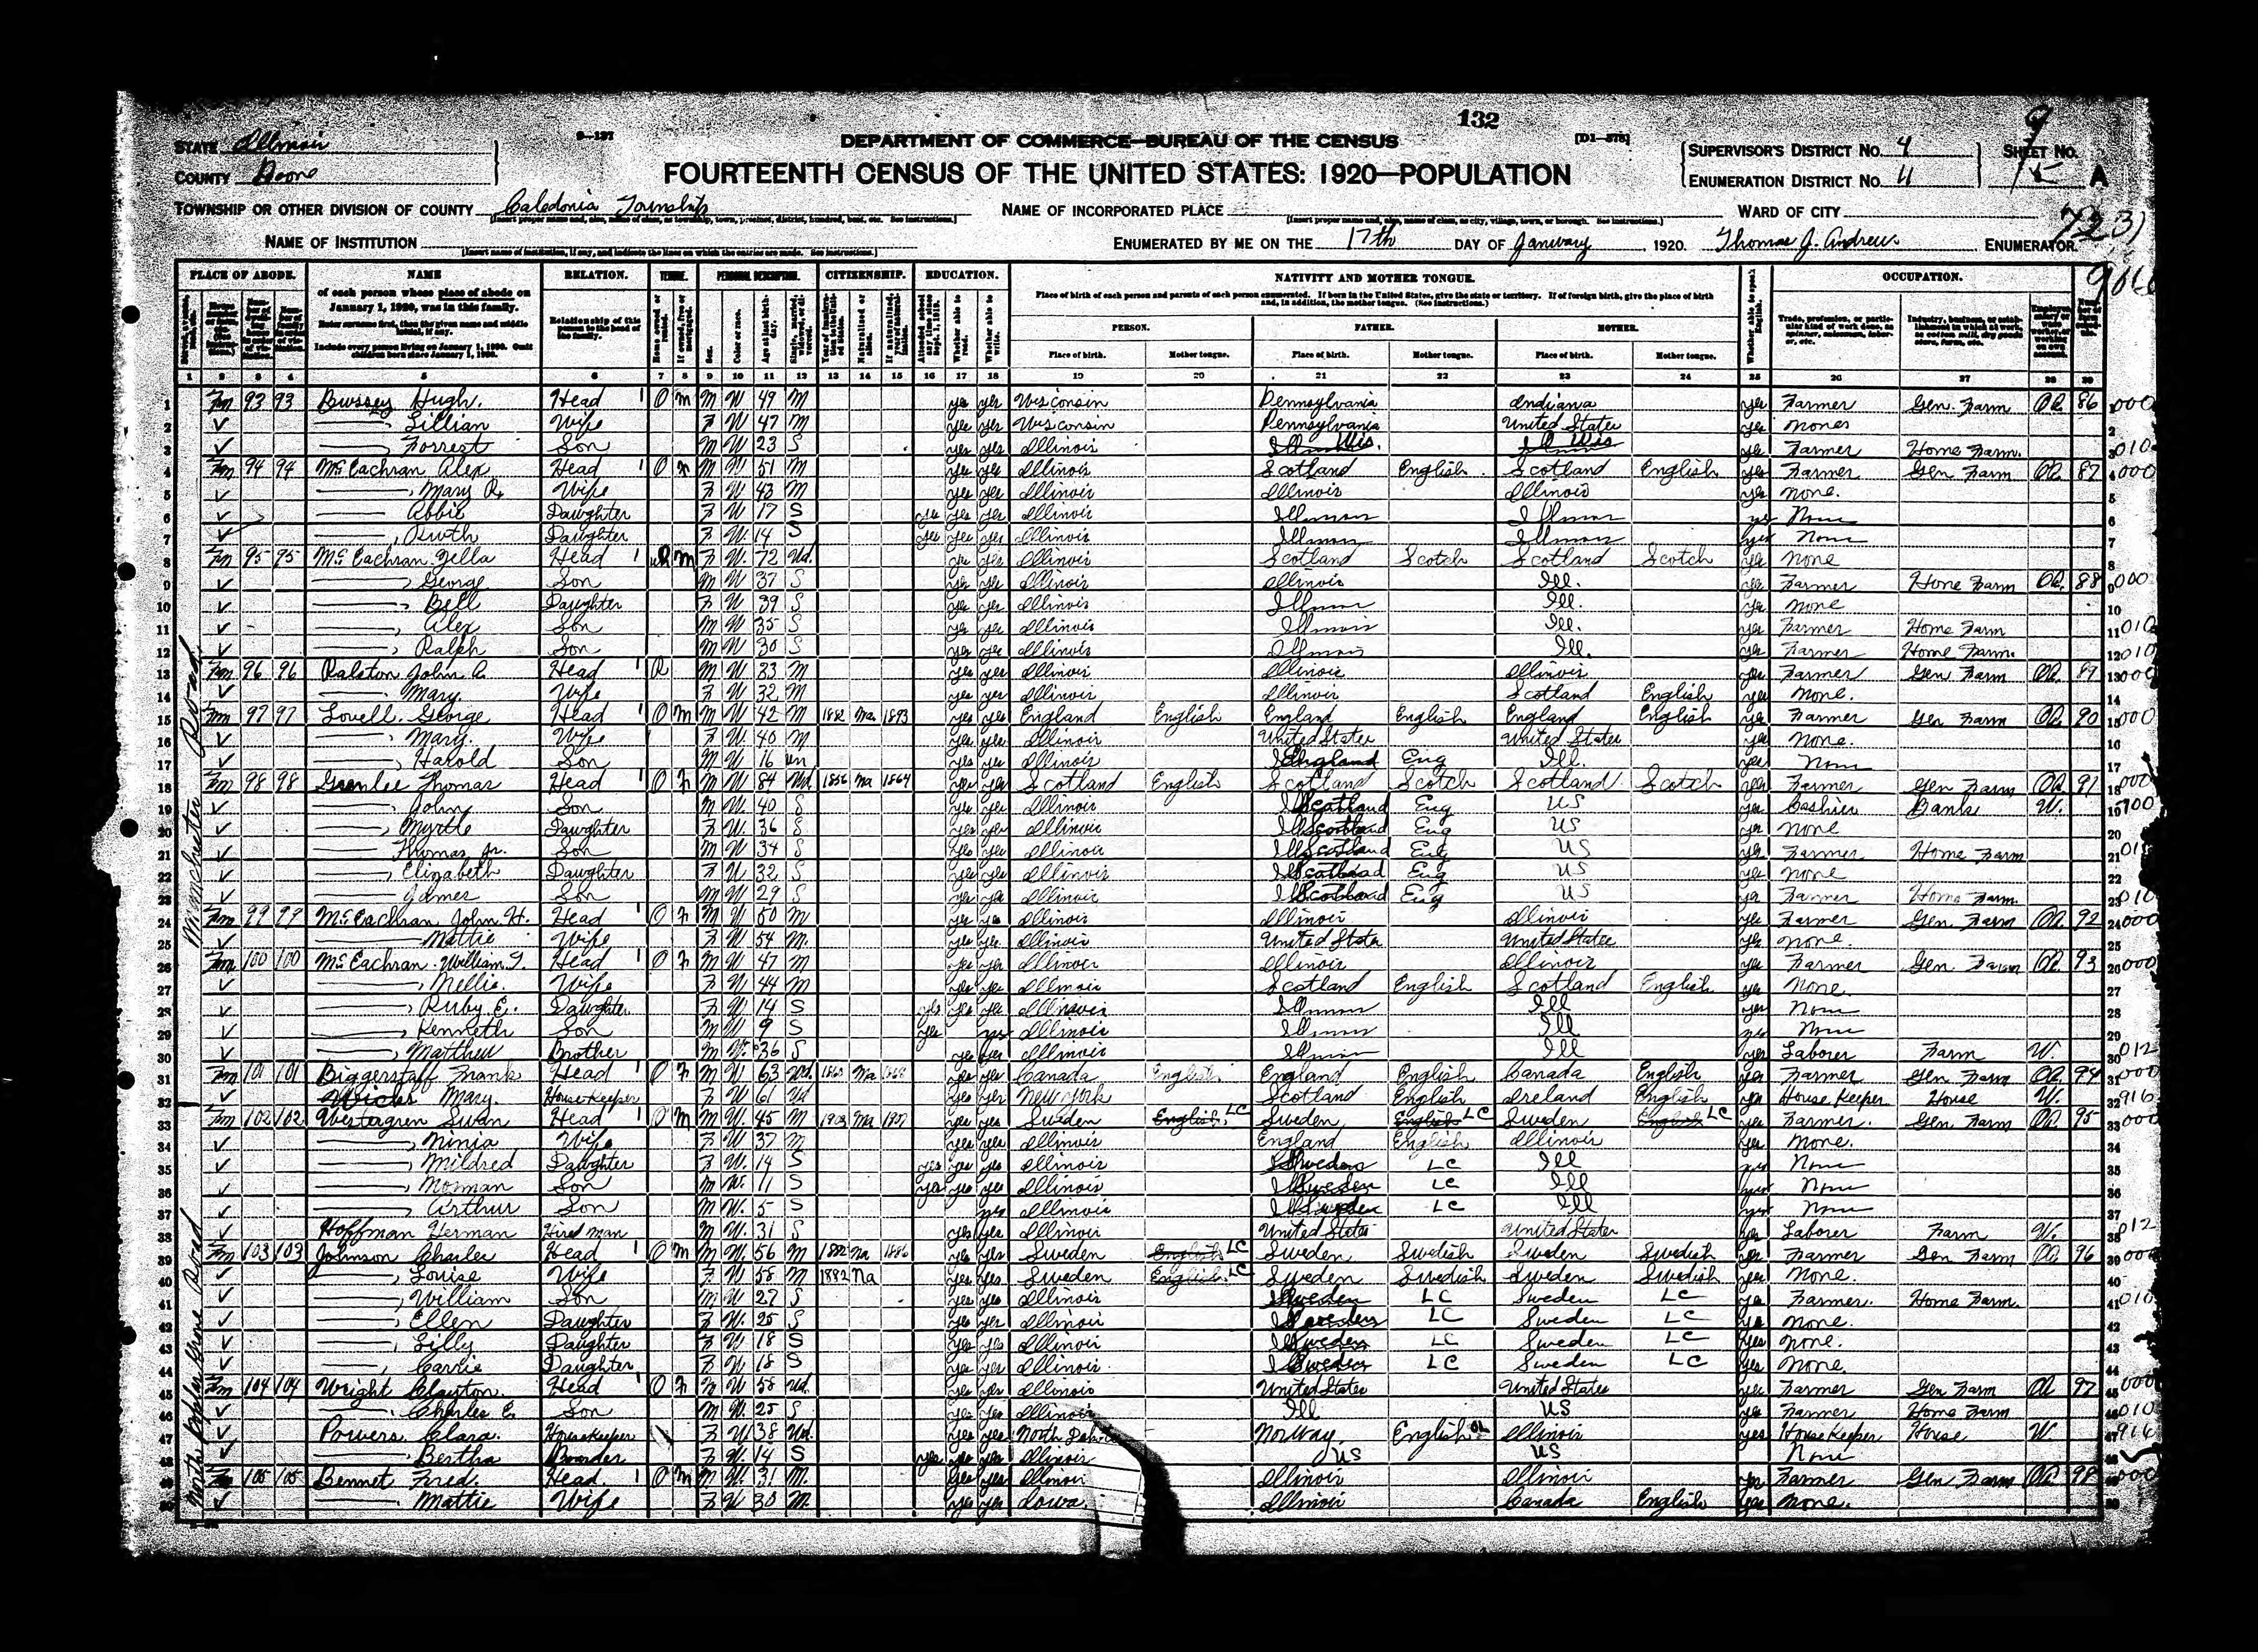 132
9
STATE Illinois
9—137
DEPARTMENT OF COMMERCE—BUREAU OF THE CENSUS
[D1—578]
SUPERVISOR'S DISTRICT No. 4
SHEET No.
COUNTY Boone
FOURTEENTH CENSUS OF THE UNITED STATES: 1920—POPULATION
ENUMERATION DISTRICT No. 11
A
TOWNSHIP OR OTHER DIVISION OF COUNTY Caledonia Township
NAME OF INCORPORATED PLACE
WARD OF CITY
NAME OF INSTITUTION
ENUMERATED BY ME ON THE 17th DAY OF January 1920. Thomas J. Andrew ENUMERATOR.
PLACE OF ABODE. NAME RELATION. TENURE. PERSONAL DESCRIPTION. CITIZENSHIP. EDUCATION. NATIVITY AND MOTHER TONGUE. OCCUPATION.
of each person whose place of abode on January 1, 1920, was in this family.
Enter surname first, then the given name and middle initial, if any.
Include every person living on January 1, 1920. Omit children born since January 1, 1920.
Relationship of this person to the head of the family.
Place of birth of each person and parents of each person enumerated. If born in the United States, give the state or territory. If of foreign birth, give the place of birth and, in addition, the mother tongue. (See instructions.)
PERSON. FATHER. MOTHER.
Place of birth. Mother tongue. Place of birth. Mother tongue. Place of birth. Mother tongue.
1 2 3 4 5 6 7 8 9 10 11 12 13 14 15 16 17 18 19 20 21 22 23 24 25 26 27 28 29
1 Fm 93 93 Bussey Hugh. Head 1 O M M W 49 M yes yes Wisconsin Pennsylvania Indiana yes Farmer Gen. Farm OA 86 000
2 ✓ —, Lillian Wife F W 47 M yes yes Wisconsin Pennsylvania United States yes None
3 ✓ —, Forrest Son M W 23 S yes yes Illinois Wis. Wis yes Farmer Home Farm. 010
4 Fm 94 94 McEachran Alex Head 1 O F M W 51 M yes yes Illinois Scotland English Scotland English yes Farmer Gen Farm OA 87 000
5 ✓ —, Mary R. Wife F W 43 M yes yes Illinois Illinois Illinois yes None.
6 ✓ — Abbie Daughter F W 17 S yes yes yes Illinois Illinois Illinois yes None
7 ✓ —, Ruth Daughter F W 14 S yes yes yes Illinois Illinois Illinois yes None
8 Fm 95 95 McEachran Zella Head 1 M F W 72 Wd. yes yes Illinois Scotland Scotch Scotland Scotch yes None
9 ✓ —, George Son M W 37 S yes yes Illinois Illinois Ill. yes Farmer Home Farm OA. 88 000
10 ✓ —, Bell Daughter F W 39 S yes yes Illinois Illinois Ill. yes None
11 ✓ —, Alex Son M W 35 S yes yes Illinois Illinois Ill. yes Farmer Home Farm 010
12 ✓ —, Ralph Son M W 30 S yes yes Illinois Illinois Ill. yes Farmer Home Farm. 010
13 Fm 96 96 Ralston John A. Head 1 R M W 33 M yes yes Illinois Illinois Illinois yes Farmer Gen Farm OA. 89 000
14 ✓ —, Mary. Wife F W 32 M yes yes Illinois Illinois Scotland English yes None.
15 Fm 97 97 Lovell. George Head 1 O M M W 42 M 1882 Na 1893 yes yes England English England English England English yes Farmer Gen Farm OA 90 000
16 ✓ —, Mary. Wife F W 40 M yes yes Illinois United States United States yes None.
17 ✓ —, Harold Son M W 16 yes yes Illinois England Eng Ill. yes None
18 Fm 98 98 Greenlee Thomas Head 1 O F M W 84 Wd. 1856 Na 1864 yes yes Scotland English Scotland Scotch Scotland Scotch yes Farmer Gen Farm OA 91 000
19 ✓ —, John Son M W 40 S yes yes Illinois Scotland Eng US yes Cashier Bank W. 900
20 ✓ —, Myrtle Daughter F W 36 S yes yes Illinois Scotland Eng US yes None
21 ✓ — Thomas Jr. Son M W 34 S yes yes Illinois Scotland Eng US yes Farmer Home Farm
22 ✓ —, Elizabeth Daughter F W 32 S yes yes Illinois Scotland Eng US yes None
23 ✓ — James Son M W 29 S yes yes Illinois Scotland Eng US yes Farmer Home Farm. 010
24 Fm 99 99 McEachran John H. Head 1 O F M W 50 M yes yes Illinois Illinois Illinois yes Farmer Gen. Farm OA. 92 000
25 ✓ — Mattie Wife F W 54 M. yes yes Illinois United States United States yes None.
26 Fm 100 100 McEachran William T. Head 1 O F M W 47 M yes yes Illinois Illinois Illinois yes Farmer Gen. Farm OA. 93 000
27 ✓ —, Nellie. Wife F W 44 M yes yes Illinois Scotland English Scotland English yes None.
28 ✓ —, Ruby E. Daughter F W 14 S yes yes yes Illinois Illinois Ill yes None
29 ✓ —, Kenneth Son M W 9 S yes yes Illinois Illinois Ill yes None
30 ✓ —, Matthew Brother M W 36 S yes yes Illinois Illinois Ill yes Laborer Farm W. 012
31 Fm 101 101 Biggerstaff Frank Head 1 O F M W 63 Wd. Na yes yes Canada English England English Canada English yes Farmer Gen Farm OA. 94 000
32 ✓ Mary. House Keeper F W 61 Wd yes yes New York Scotland English Ireland English yes House Keeper House W. 916
33 Fm 102 102 Westergren Swan Head 1 O M M W 45 M 1903 Na 1907 yes yes Sweden English LC Sweden English LC Sweden English LC yes Farmer. Gen Farm OA. 95 000
34 ✓ —, Ninia Wife F W 37 M yes yes Illinois England English Illinois yes None.
35 ✓ —, Mildred Daughter F W 14 S yes yes yes Illinois Sweden LC Ill yes None
36 ✓ —, Norman Son M W 11 S yes yes yes Illinois Sweden LC Ill yes None
37 ✓ —, Arthur Son M W 5 S Illinois Sweden LC Ill None
38 ✓ Hoffman Herman Hired man M W 31 S yes yes Illinois United States United States yes Laborer Farm W. 012
39 Fm 103 103 Johnson Charles Head 1 O M M W 56 M 1882 Na 1886 yes yes Sweden English LC Sweden Swedish Sweden Swedish yes Farmer Gen Farm OA 96 000
40 ✓ —, Louise Wife F W 58 M 1882 Na yes yes Sweden English LC Sweden Swedish Sweden Swedish yes None.
41 ✓ —, William Son M W 27 S yes yes Illinois Sweden LC Sweden LC yes Farmer. Home Farm. 010
42 ✓ —, Ellen Daughter F W 25 S yes yes Illinois Sweden LC Sweden LC yes None.
43 ✓ —, Lilly Daughter F W 18 S yes yes Illinois Sweden LC Sweden LC yes None.
44 ✓ —, Carrie Daughter F W 18 S yes yes Illinois Sweden LC Sweden LC yes None
45 Fm 104 104 Wright Clayton. Head 1 O F W 58 Wd. yes yes Illinois United States United States yes Farmer Gen Farm OA 97 000
46 ✓ —, Charles E. Son M W 25 S yes yes Illinois Ill US yes Farmer Home Farm 010
47 ✓ Powers Clara. Housekeeper F W 38 Wd. yes yes North Dakota Norway English Illinois yes House Keeper House W 916
48 ✓ — Bertha Boarder F W 14 S yes yes yes Illinois US US None
49 105 105 Bennet Fred. Head. 1 O M M W 31 M. yes yes Illinois Illinois Illinois yes Farmer Gen Farm OA 98 000
50 ✓ —. Mattie Wife F W 30 M. yes yes Iowa Illinois Canada English yes None.
Manchester Road
North Poplar Grove Road